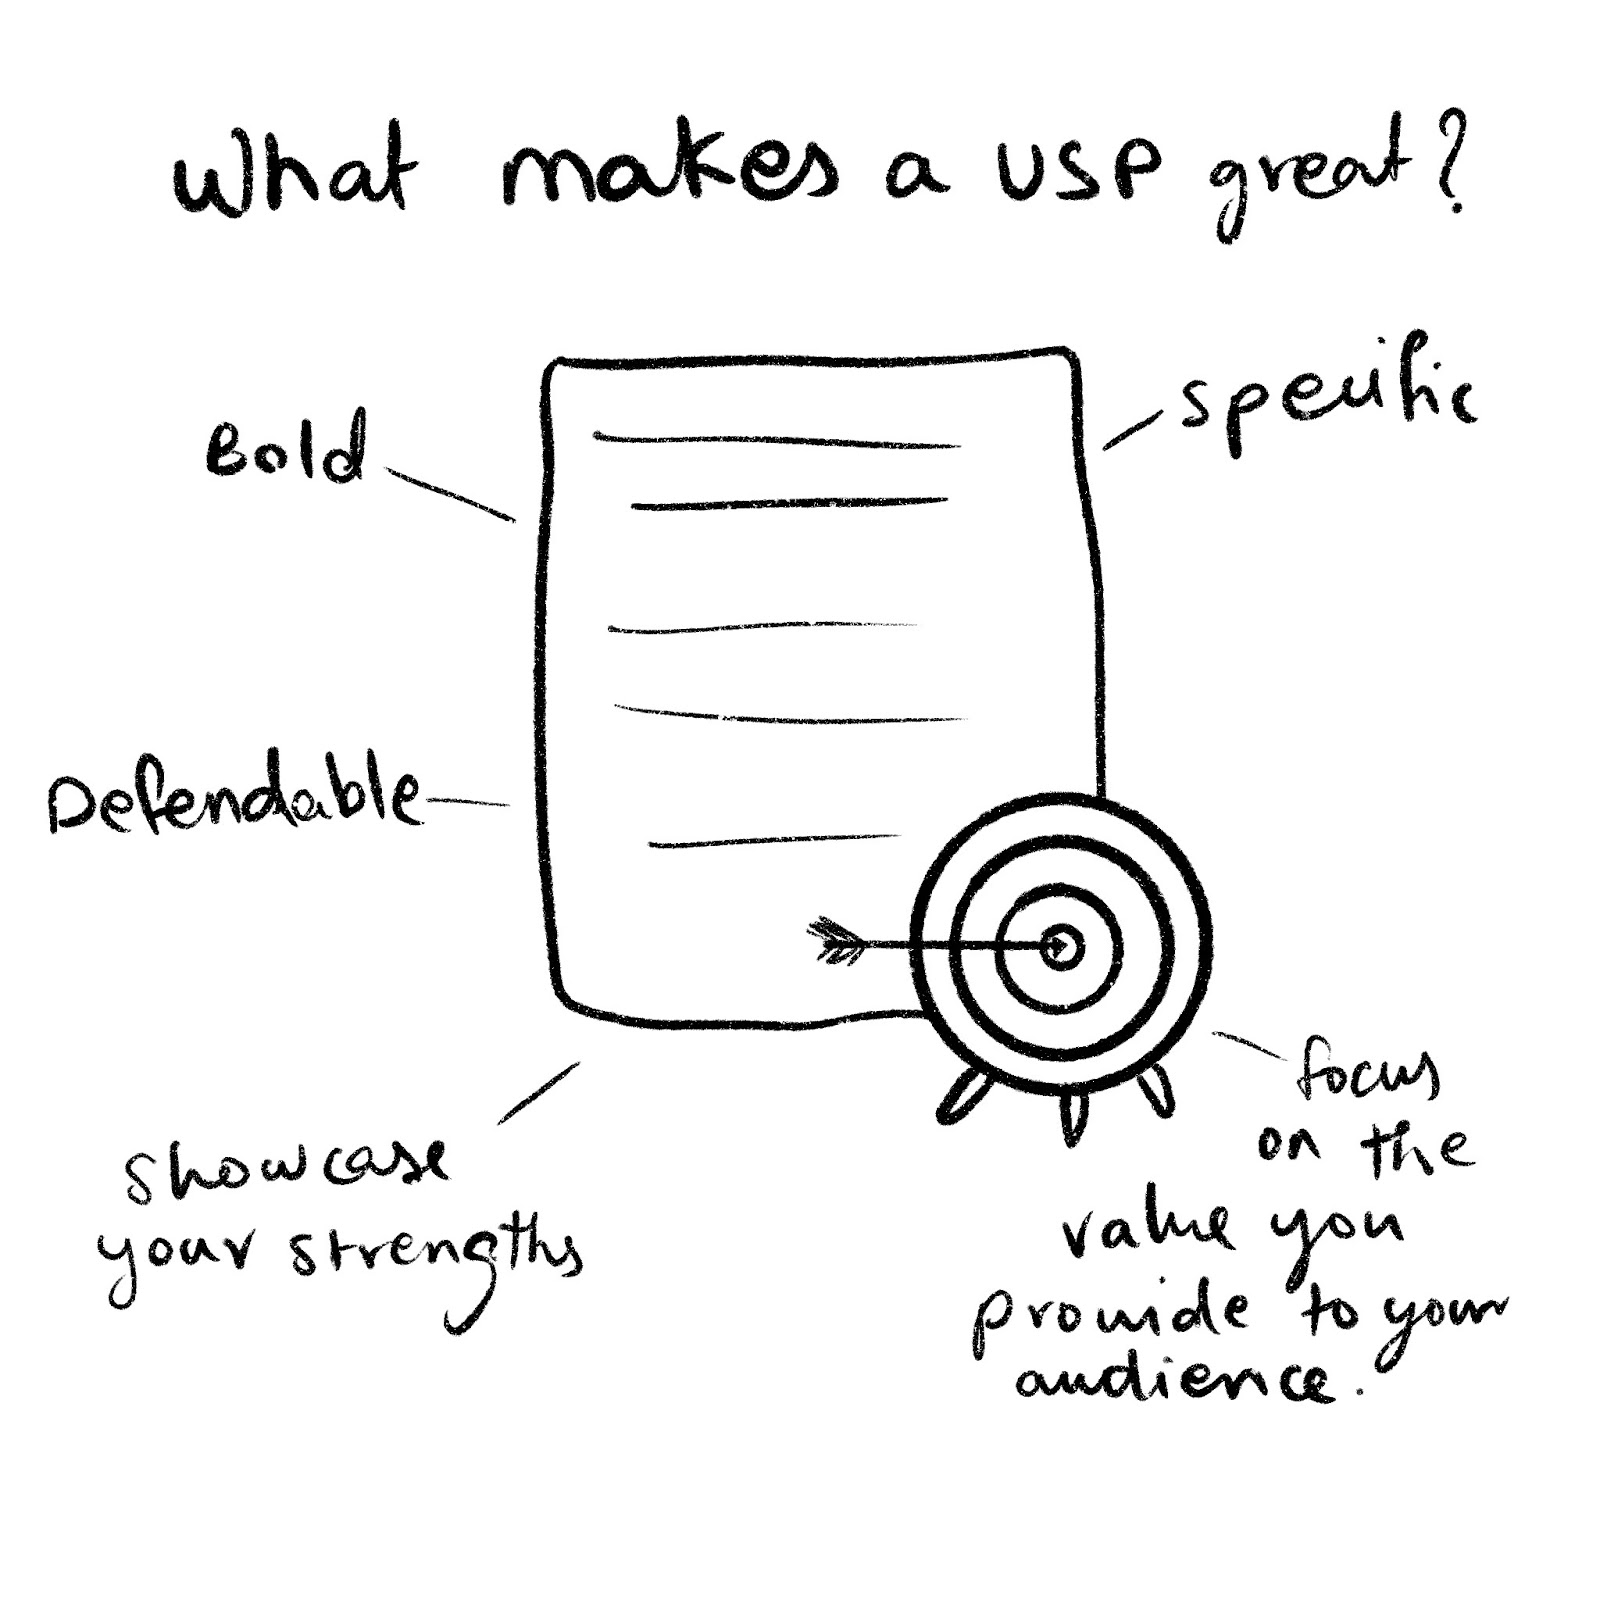 What makes a USP great?
Bold
specific
Defendable
showcase
your strengths
focus
on the
value you
provide to your
audience.